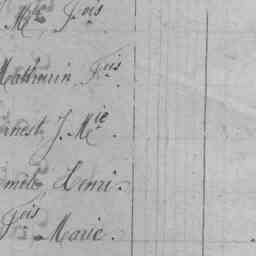 Mie Fois
Mathurin Fois
Ernest J. Mie
Henri.
Fois Marie.